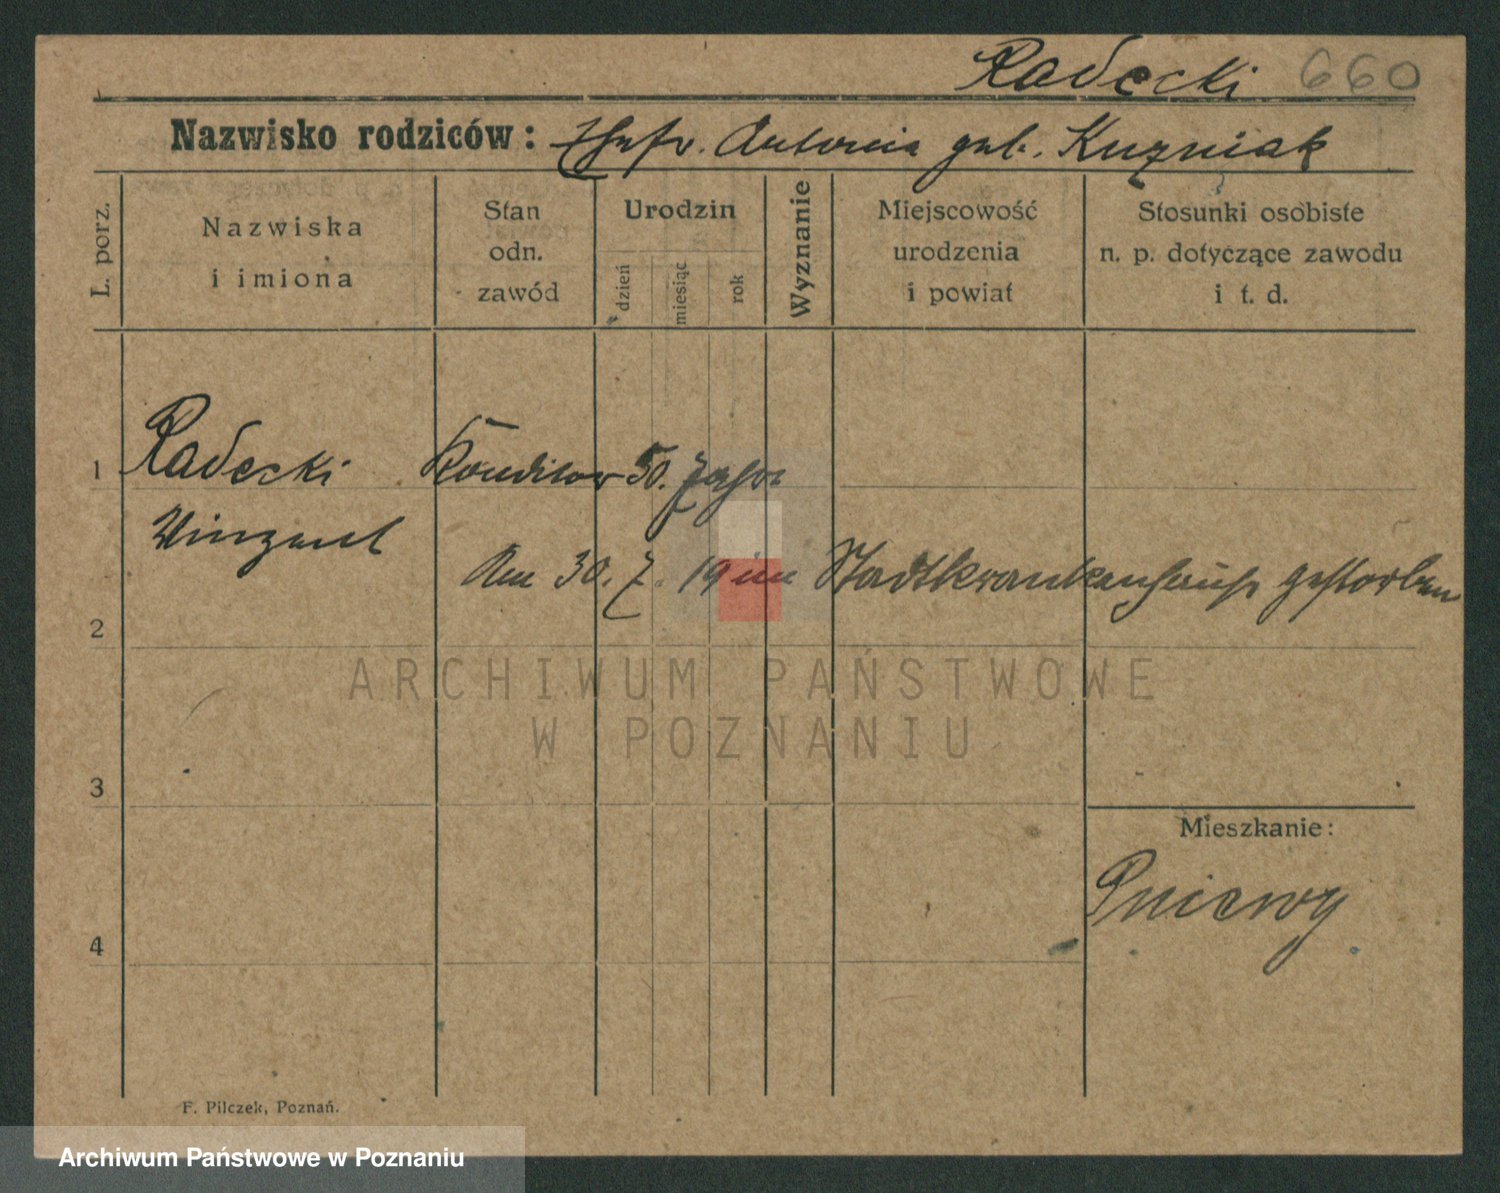 Radecki 660
Nazwisko rodziców: Ehefr. Antonia geb. Kuzniak
L. porz.
Nazwiska
i imiona
Stan
odn.
zawód
Urodzin
dzień
miesiąc
rok
Wyznanie
Miejscowość
urodzenia
i powiat
Stosunki osobiste
n. p. dotyczące zawodu
i t. d.
1 Radecki Konditor 50. Jahre
Winzent
Am 30. 7. 19 im Stadtkrankenhause gestorben
2
ARCHIWUM PAŃSTWOWE
W POZNANIU
3
Mieszkanie:
Pniewy
4
F. Pilczek, Poznań.
Archiwum Państwowe w Poznaniu